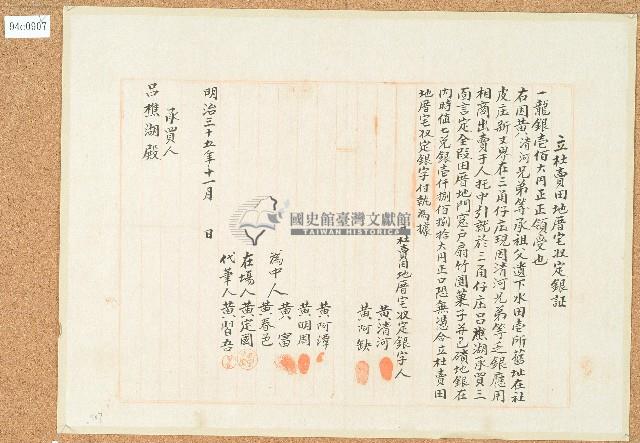 94c0907
立杜賣田地厝宅収定銀証
一龍銀壹佰大円正正領受也
右因黃清河兄弟等承祖父遺下水田壹所舊址在社
皮庄新丈界在三角仔庄現因清河兄弟等乏銀應用
相商出賣于人托中引就於三角仔庄呂樵湖承買三
面言定全段田厝地門窓戶扇竹圍菓子并已磧地銀在
內時值七兌銀壹仟捌佰捌拾大円正口恐無憑合立杜賣田
地厝宅収定銀字付執為據
立杜賣田地厝宅収定銀字人
黃清河
黃阿缺
黃阿潭
黃明周
為中人 黃富
黃春色
在場人 黃定國
代筆人 黃習吾
明治三十五年十一月 日
承買人
呂樵湖殿
國史館臺灣文獻館
TAIWAN HISTORICA